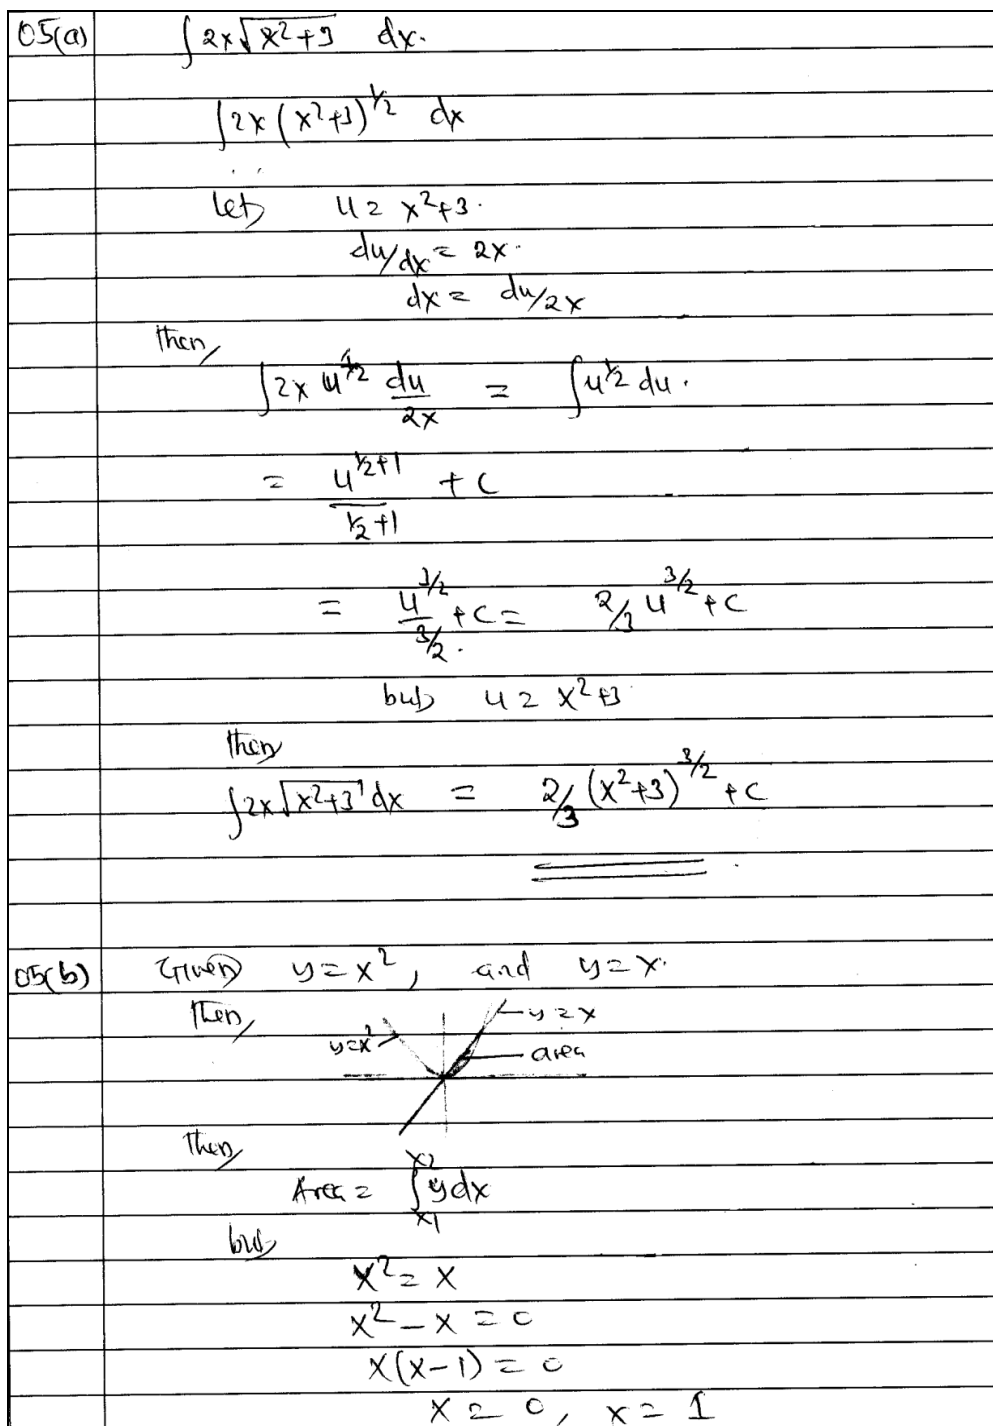 05(a) ∫2x√x²+3 dx.
∫2x(x²+3)^1/2 dx
Let u = x²+3.
du/dx = 2x.
dx = du/2x
then,
∫2x u^1/2 du/2x = ∫u^1/2 du.
= u^1/2+1 / 1/2+1 + C
= u^3/2 / 3/2 + C = 2/3 u^3/2 + C
but u = x²+3
then
∫2x√x²+3 dx = 2/3 (x²+3)^3/2 + C
05(b) Given y=x², and y=x.
Then,
y=x
y=x²
area
Then,
Area = ∫x1 x2 y dx
but
x² = x
x² - x = 0
x(x-1) = 0
x = 0, x = 1